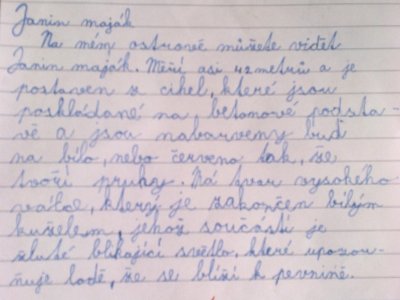 Janin maják
Na mém ostrově můžete vidět
Janin maják. Měří asi 42 metrů a je
postaven z cihel, které jsou
poskládané na betonové podsta-
vě a jsou nabarveny buď
na bílo, nebo červeno tak, že
tvoří pruhy. Má tvar vysokého
válce, který je zakončen bílým
kuželem, jehož součástí je
žluté blikající světlo, které upozor-
ňuje lodě, že se blíží k pevnině.